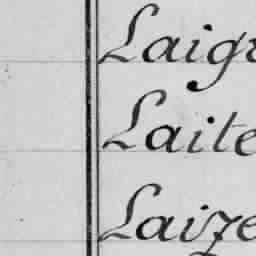 Laigr
Laite
Laize